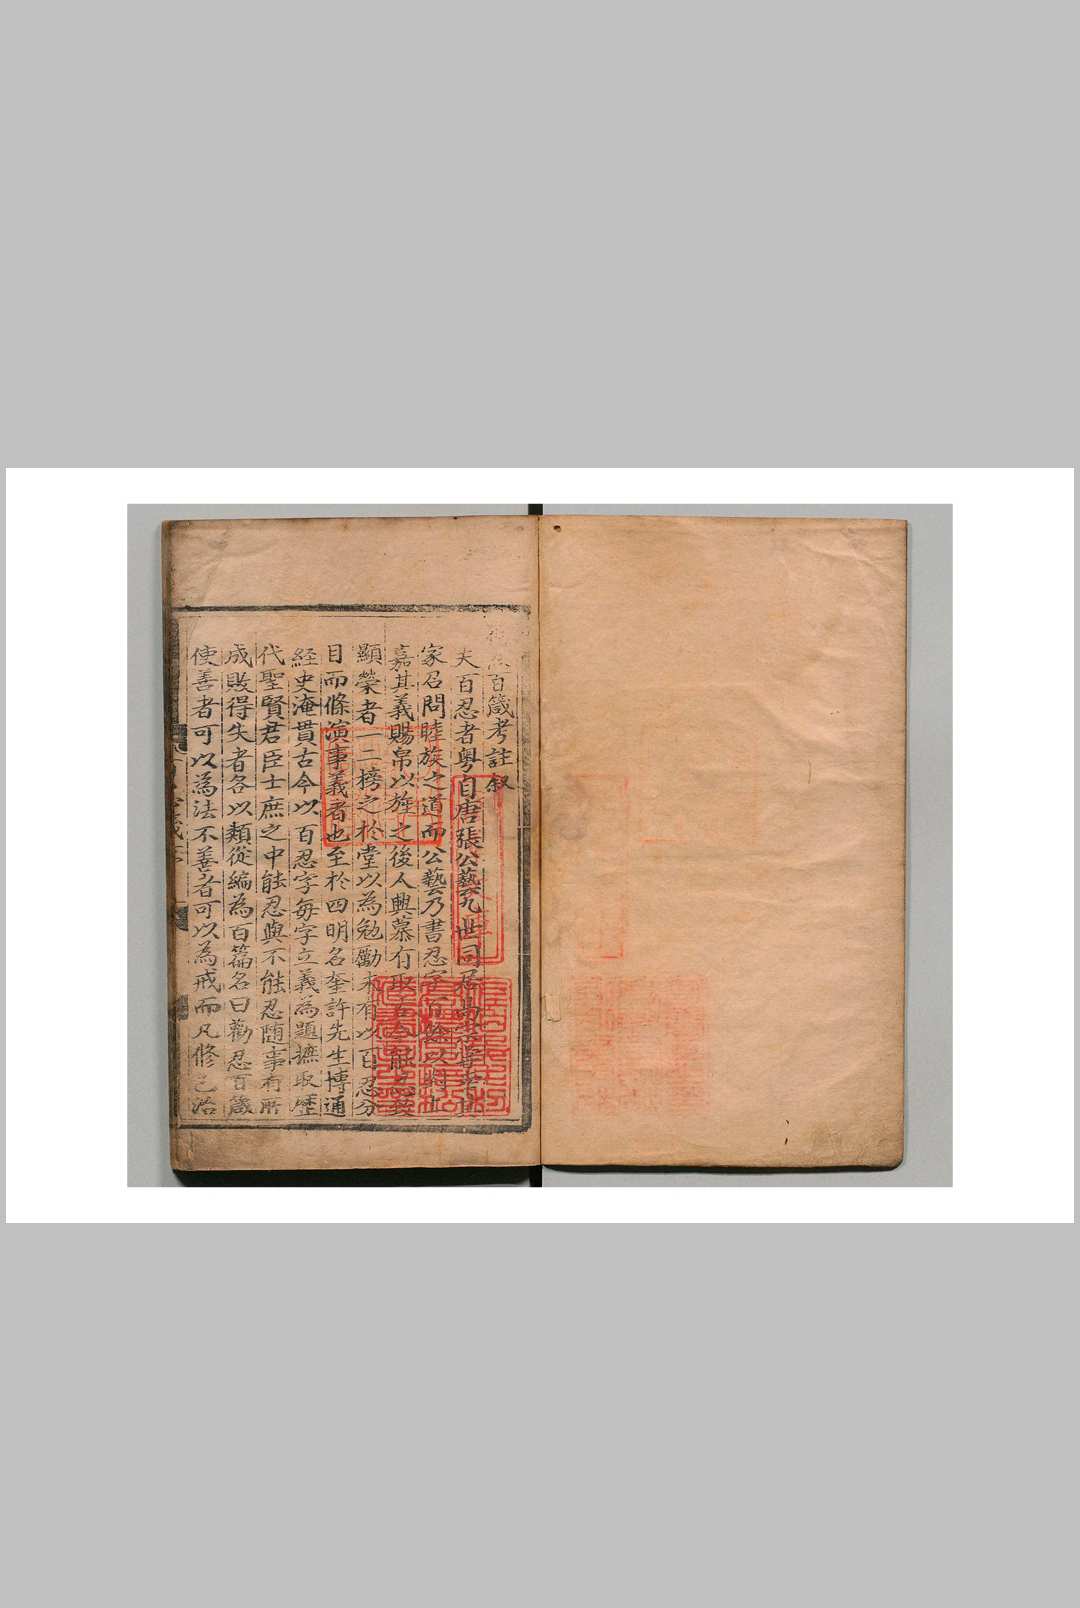 百箴考註叙
夫百忍者粤自唐張公藝九世同居高宗
家召問睦族之道而公藝乃書忍字百餘以
嘉其義賜帛以旌之後人興慕有取古今能忍致
顯榮者一二榜之於堂以為勉勵未有以百忍分
目而條演事義者也至於四明名奎許先生博通
経史淹貫古今以百忍字每字立義為題摭取歴
代聖賢君臣士庶之中能忍與不能忍随事有所
成敗得失者各以類從編為百篇名曰勸忍百箴
使善者可以為法不善者可以為戒而凡修己治